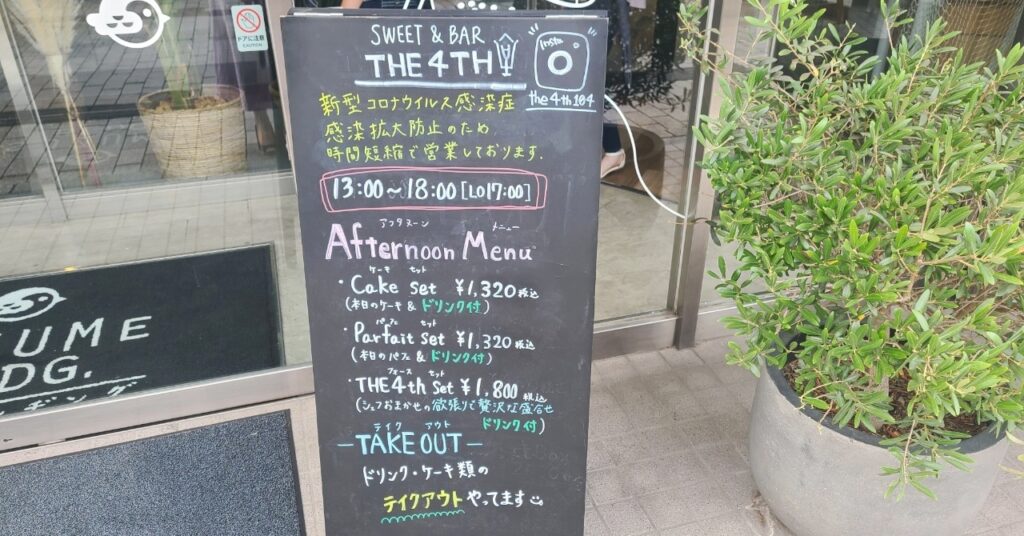 ドアに注意
CAUTION
SWEET & BAR
THE 4TH
Insta
the4th104
新型コロナウイルス感染症
感染拡大防止のため
時間短縮で営業しております.
13:00~18:00[LO17:00]
アフタヌーン メニュー
Afternoon Menu
ケーキ セット
・Cake set ¥1,320税込
(本日のケーキ & ドリンク付)
パフェ セット
・Parfait set ¥1,320税込
(本日のパフェ & ドリンク付)
フォース セット
・THE4th Set ¥1,800税込
(シェフおまかせの欲張りで贅沢な盛合せ
ドリンク付)
テイク アウト
-TAKE OUT-
ドリンク・ケーキ類の
テイクアウトやってます
UME
DG.
ディング